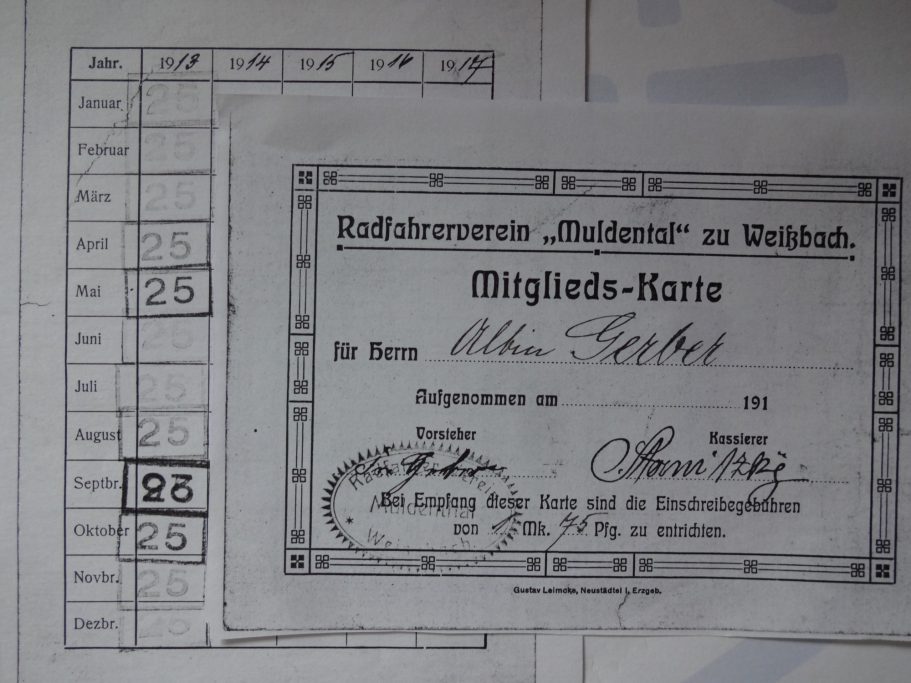 Jahr. 1913 1914 1915 1916 1917
Januar 25
Februar 25
März 25
April 25
Mai 25
Juni 25
Juli 25
August 25
Septbr.
Oktober 25
Novbr. 25
Dezbr. 25
Radfahrerverein „Muldental“ zu Weißbach.
Mitglieds-Karte
für Herrn Albin Gerber
Aufgenommen am 191
Vorsteher Kassierer
Radfahrer-Verein
Muldenthal
Weissbach
Bei Empfang dieser Karte sind die Einschreibegebühren
von 1 Mk. 75 Pfg. zu entrichten.
Gustav Leimcke, Neustädtel i. Erzgeb.